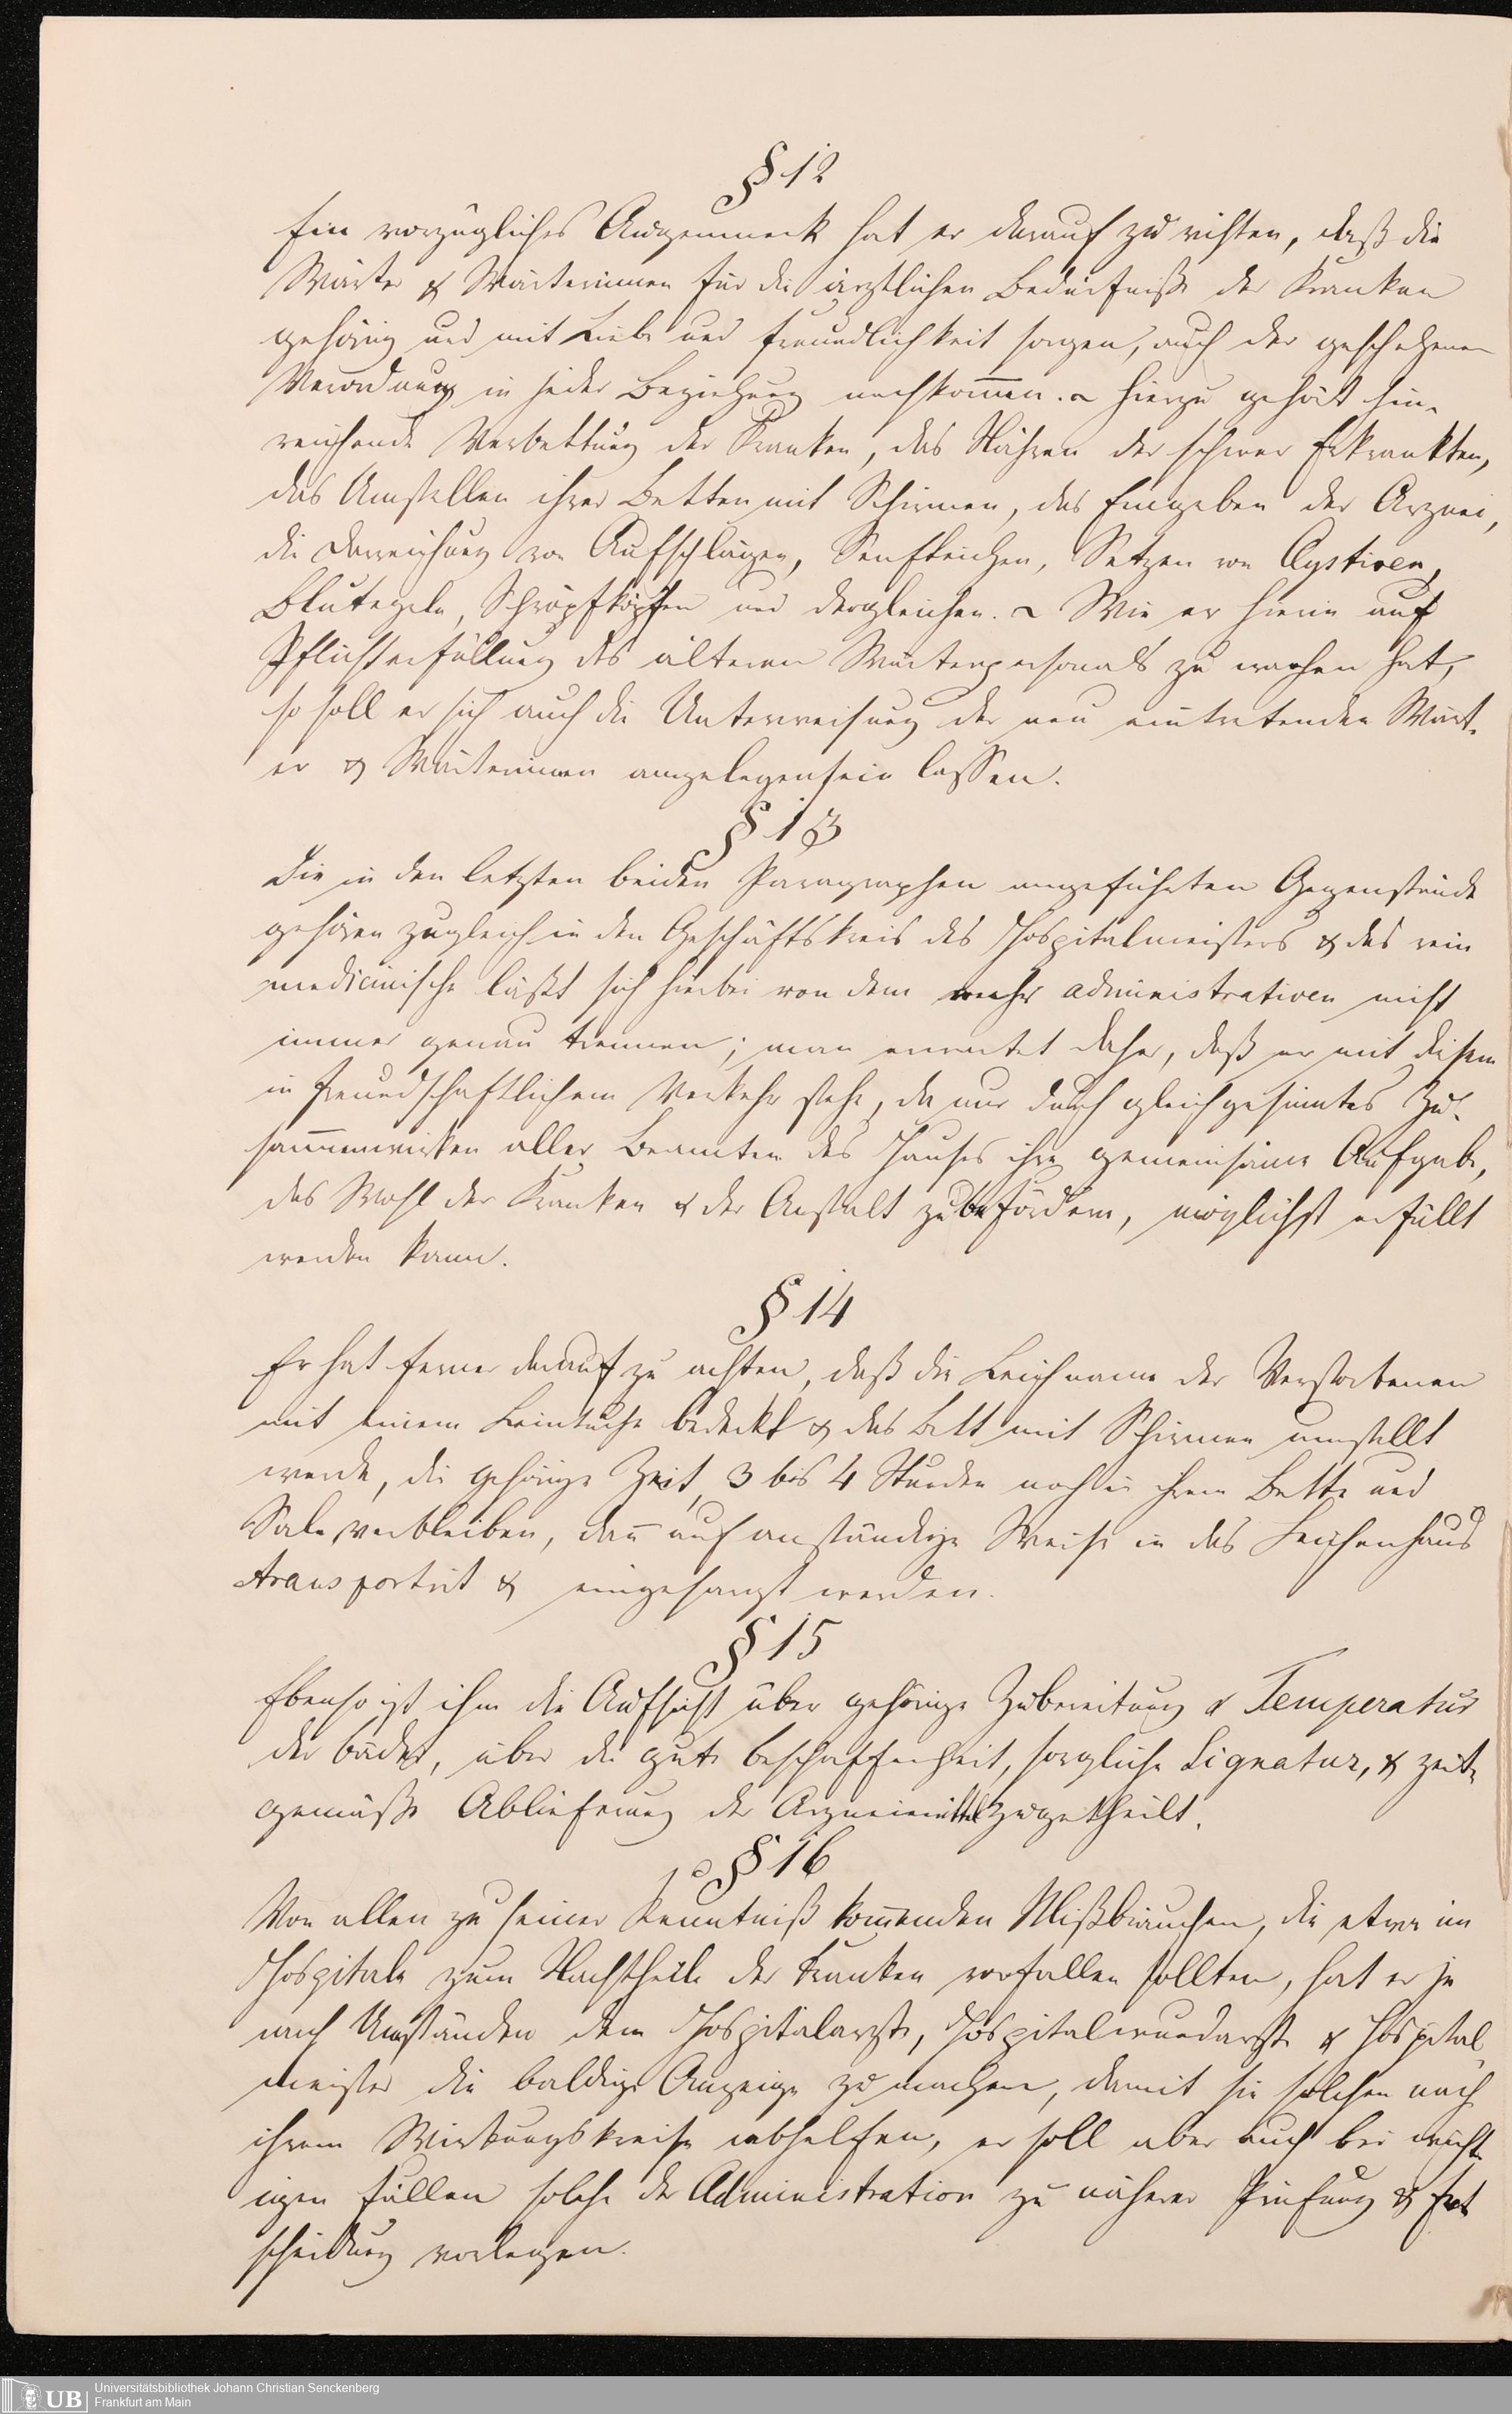 § 12
Ein vorzügliches Augenmerk hat er darauf zu richten, daß die
Wärter & Wärterinnen für die ärztlichen Bedürfniße der Kranken
gehörig und mit Liebe und Freundlichkeit sorgen, auch der geschehenen
Verordnung in jeder Beziehung nachkom̄en. – Hierzu gehört hin-
reichende Verbettung der Kranken, das Nähren der schwer Erkrankten,
das Umstellen ihrer Betten mit Schirmen, das Eingeben der Arznei,
die Darreichung von Aufschlägen, Senfteichen, Setzen von Clystiren,
Blutegeln, Schröpfköpfen und dergleichen. – Wie er hierin auf
Pflichterfüllung des älteren Wärterpersonals zu wachen hat,
so soll er sich auch die Unterweisung der neu eintretenden Wärt-
er & Wärterinnen angelegen sein lassen.
§ 13
Die in den letzten beiden Paragraphen angeführten Gegenstände
gehören zugleich in den Geschäftskreis des Hospitalmeisters & das rein
medicinische läßt sich hierbei von dem mehr administrativen nicht
immer genau trennen; man erwartet daher, daß er mit diesem
in freundschaftlichem Verkehr stehe, da nur durch gleichgesinntes Zu-
sam̄enwirken aller Beamten des Hauses ihre gemeinsame Aufgabe,
das Wohl der Kranken & der Anstalt zu befördern, möglichst erfüllt
werden kann.
§ 14
Er hat ferner darauf zu achten, daß die Leichname der Verstorbenen
mit einem Leintuche bedeckt & das Bett mit Schirmen umstellt
werde, die gehörige Zeit, 3 bis 4 Stunden noch in ihrem Bette und
Sale verbleiben, dan̄ auf anständige Weise in das Leichenhaus
transportirt & eingesargt werden.
§ 15
Ebenso ist ihm die Aufsicht über gehörige Zubereitung & Temperatur
der Bäder, über die gute Beschaffenheit, sorgliche Signatur, & zeit-
gemäße Ablieferung der Arzneimittel zugetheilt.
§ 16
Von allen zu seiner Kenntniß kom̄enden Mißbräuchen, die etwa im
Hospitale zum Nachtheile der Kranken vorfallen sollten, hat er je
nach Umständen dem Hospitalarzte, Hospitalwundarzte & Hospital
meister die baldige Anzeige zu machen, damit sie solchen nach
ihrem Wirkungskreise abhelfen, er soll aber auch bei wicht-
igen Fällen solche der Administration zu näherer Prüfung & Ent
scheidung vorlegen.
UB
Universitätsbibliothek Johann Christian Senckenberg
Frankfurt am Main